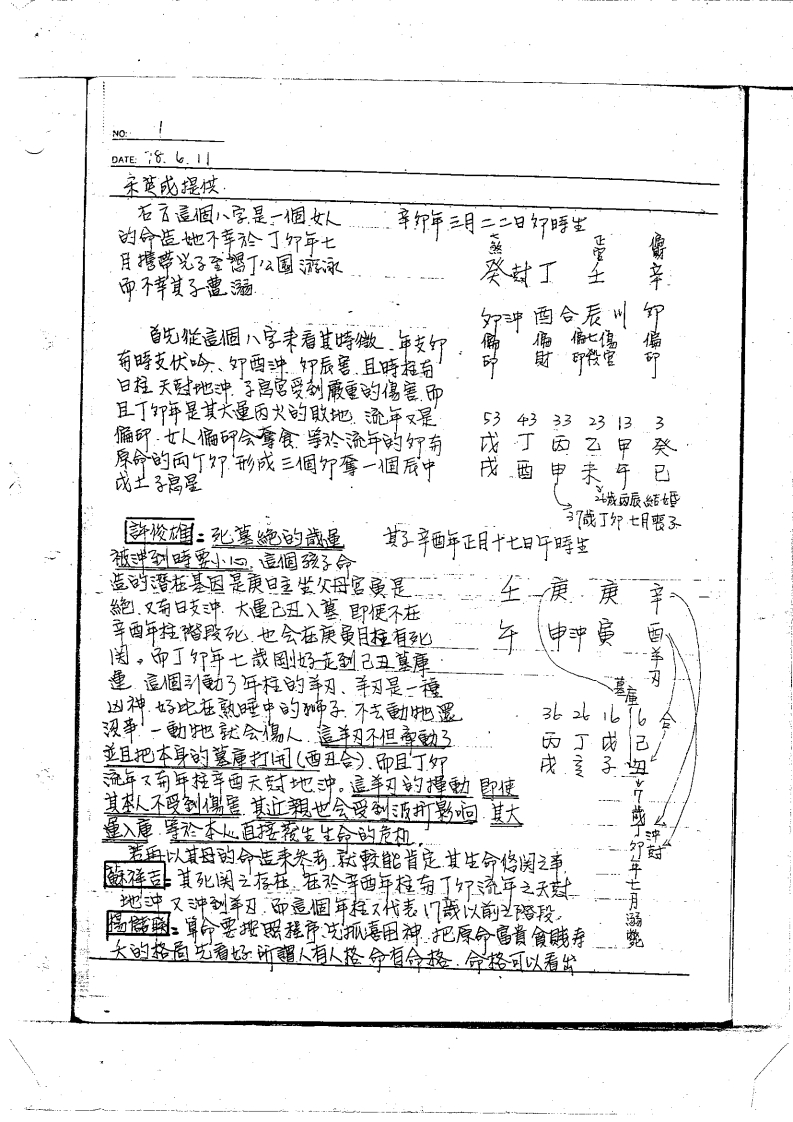 NO: 1
DATE: 78.6.11
宋英成提供.
右方這個八字是一個女人
的命造她不幸於丁卯年七
月攜帶兒子至 公園游泳
而不幸其子遭溺
辛卯年三月二二日卯時生
七煞 正官 偏財
癸 封 丁 壬 辛
卯沖酉合辰川卯
偏印 偏財 偏印七殺傷官 偏印
首先從這個八字來看其特徵、年支卯
有時支伏吟、卯酉沖.卯辰害.且時柱有
日柱天尅地沖.子息宮受到嚴重的傷害.而
且丁卯年是其大運丙火的敗地.流年又是
偏印.女人偏印会奪食.等於流年的卯有
原命的兩丁卯.形成三個卯奪一個辰中
戊土子息星
53 43 33 23 13 3
戊 丁 丙 乙 甲 癸
戌 酉 申 未 午 巳
26歲丙辰結婚
37歲丁卯七月喪子
許俊雄:死墓絕的歲運
被沖到時要小心.這個孩子命
造的潛在基因是庚日主坐父母宮寅是
絕.又有日支沖.大運己丑入墓.即便不在
辛酉年柱階段死.也会在庚寅月柱有死
関。而丁卯年七歲剛好走到己丑墓庫
運.這個引動了年柱的羊刃、羊刃是一種
凶神.好比在熟睡中的獅子.不去動牠還
沒事.一動牠就会傷人.這羊刃不但牽動了
並且把本身的墓庫打開(酉丑合).而且丁卯
流年又有年柱辛酉天尅地沖.這羊刃的撞動.即使
其本人不受到傷害.其近親也会受到波打影响.其大
運入庫.等於本人直接發生生命的危机.
若再以其母的命造來參考.就較能肯定其生命悠関之事.
其子辛酉年正月十七日午時生
壬 庚 庚 辛
午 申沖寅 酉羊刃
墓庫
36 26 16 6 合
丙 丁 戊 己
戌 亥 子 丑
7歲丁卯年七月溺斃
沖尅
蘇祥吉:其死関之存在.在於辛酉年柱有丁卯流年之天尅
地沖.又沖到羊刃.而這個年柱又代表17歲以前之階段.
:算命要按照程序.先抓喜用神.把原命富貴貧賤壽
夭的格局先看好.所謂人有人格.命有命格.命格可以看出